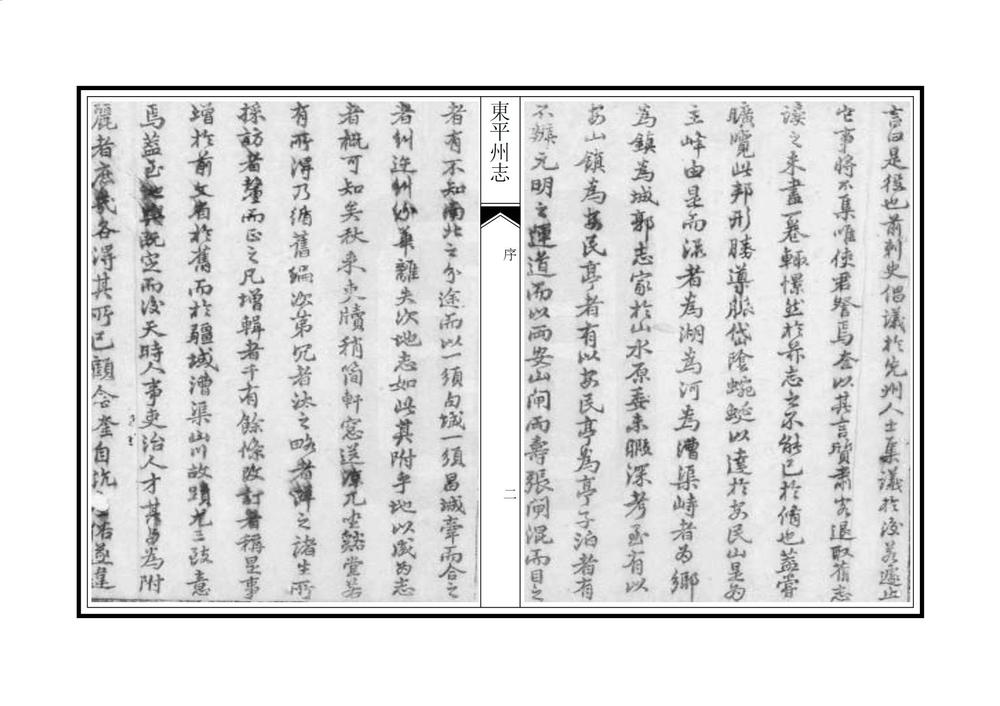 言曰是役也前刺史倡議於先州人士集議於後若遽止
它事將不集唯使君督焉奎以其言質肅客退取舊志
讀之未盡一卷輒慨然於茲志之不能已於脩也蓋嘗
曠覽此邦形勝導脈岱陰蜿蜒以達於安民山是為
主峰由是而流者為湖為河為漕渠峙者為鄉
為鎮為城郭志家於山水原委未暇深考至有以
安山鎮為安民亭者有以安民亭為亭子泊者有
不辨元明之運道而以兩安山閘兩壽張閘混而目之
東平州志
序
二
者有不知南北之分途而以一須句城一須昌城牽而合之
者糾迕糾紛舛離失次地志如此其附乎地以成為志
者概可知矣秋來吏牘稍簡軒窓送凉兀坐谿堂若
有所得乃循舊編次第冗者汰之略者詳之諸生所
採訪者釐而正之凡增輯者千有餘條改訂者稱是事
增於前文省於舊而於疆域漕渠山川故蹟尤三致意
焉蓋至地輿既定而後天時人事吏治人才其昌為附
麗者庶幾各得其所已顧念奎自抗 偌並違